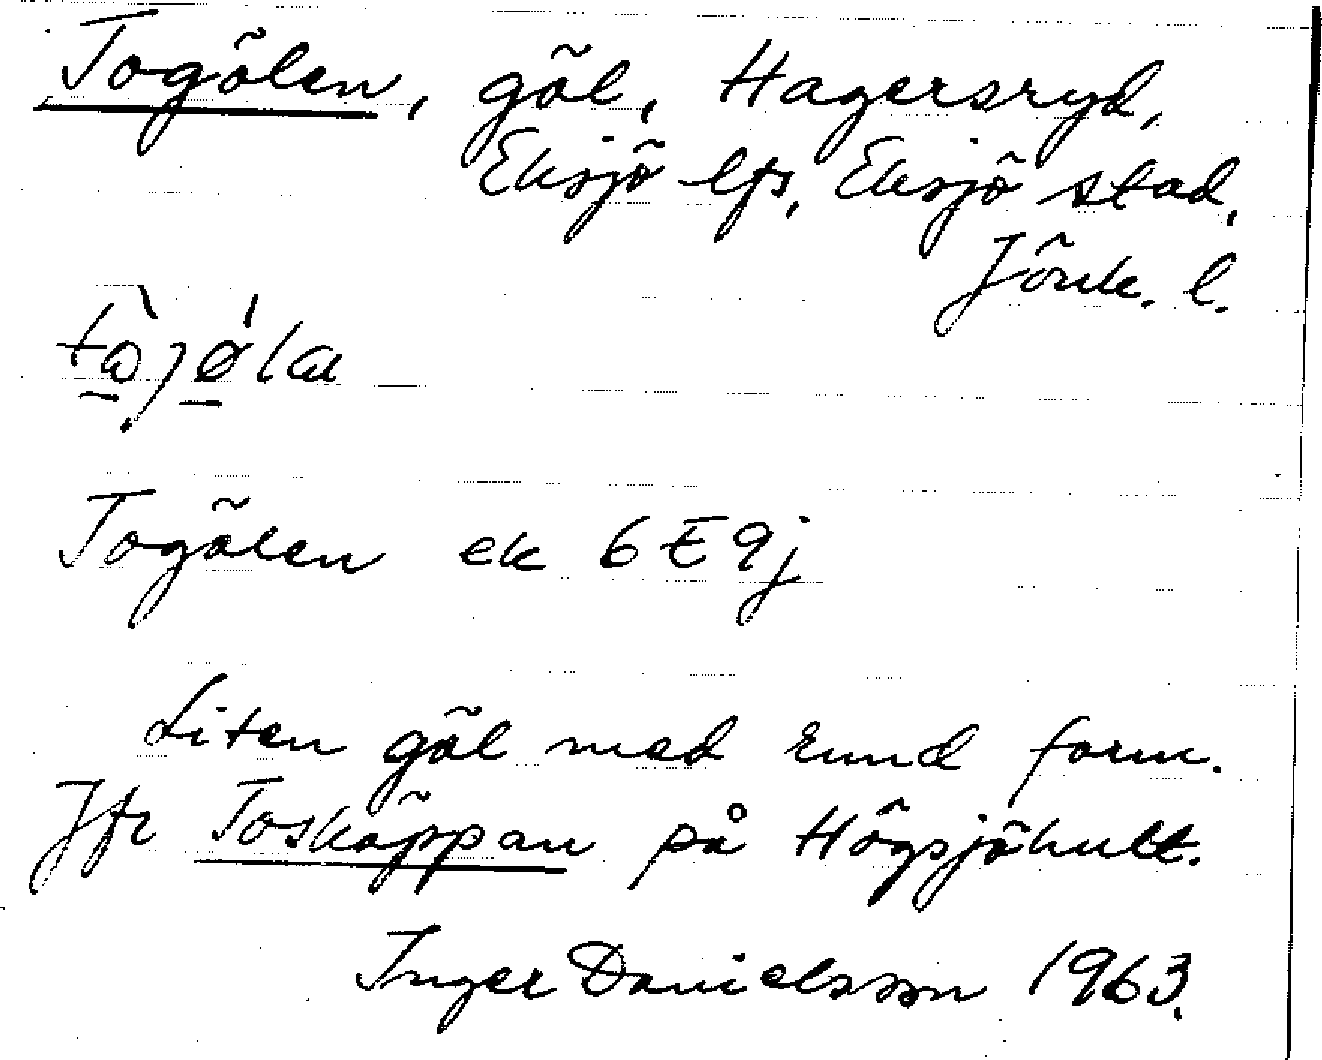 Togölen, göl, Hagersryd,
Eksjö lfs, Eksjö stad,
Jönk. l.
Togölen ek 6E9j
Liten göl med rund form.
Jfr Tosköppan på Högsjöhult.
Inger Danielsson 1963.